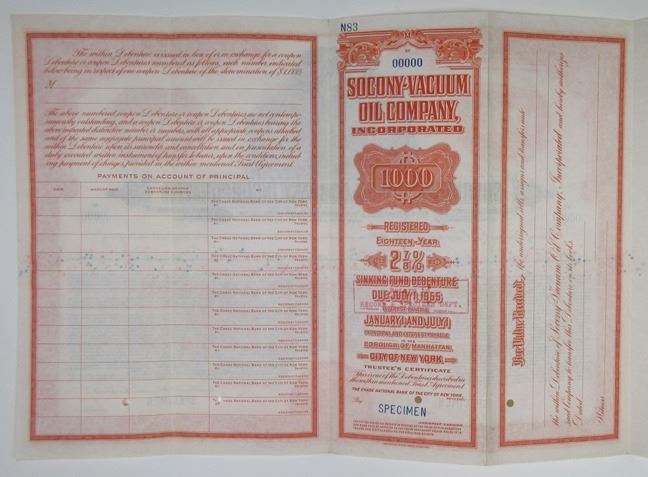 The within Debenture is issued in lieu of or in exchange for a coupon
Debenture or coupon Debentures numbered as follows, each number indicated
below being in respect of one coupon Debenture of the denomination of $1,000
M
The above numbered coupon Debenture or coupon Debentures are not contempo-
raneously outstanding, and a coupon Debenture or coupon Debentures bearing the
above indicated distinctive number or numbers, with all appropriate coupons attached
and of the same aggregate principal amount will be issued in exchange for the
within Debenture upon its surrender and cancellation and on presentation of a
duly executed written instrument of transfer
upon the conditions, includ-
ing payment of charges, provided in the within mentioned Trust Agreement
PAYMENTS ON ACCOUNT OF PRINCIPAL
DATE AMOUNT PAID BY
THE CHASE NATIONAL BANK OF THE CITY OF NEW YORK
THE CHASE NATIONAL BANK OF THE CITY OF NEW YORK
THE CHASE NATIONAL BANK OF THE CITY OF NEW YORK
THE CHASE NATIONAL BANK OF THE CITY OF NEW YORK
THE CHASE NATIONAL BANK OF THE CITY OF NEW YORK
THE CHASE NATIONAL BANK OF THE CITY OF NEW YORK
THE CHASE NATIONAL BANK OF THE CITY OF NEW YORK
THE CHASE NATIONAL BANK OF THE CITY OF NEW YORK
THE CHASE NATIONAL BANK OF THE CITY OF NEW YORK
THE CHASE NATIONAL BANK OF THE CITY OF NEW YORK
THE CHASE NATIONAL BANK OF THE CITY OF NEW YORK
THE CHASE NATIONAL BANK OF THE CITY OF NEW YORK
N83
M
00000
SOCONY-VACUUM
OIL COMPANY,
INCORPORATED
1000
REGISTERED
EIGHTEEN-YEAR
2 7/8 %
SINKING FUND DEBENTURE
DUE JULY 1, 1955
INTEREST PAYABLE
JANUARY 1 AND JULY 1
PRINCIPAL AND INTEREST PAYABLE
IN THE
BOROUGH OF MANHATTAN,
CITY OF NEW YORK
TRUSTEE'S CERTIFICATE
This is one of the Debentures described in
the within mentioned Trust Agreement
THE CHASE NATIONAL BANK OF THE CITY OF NEW YORK,
By
SPECIMEN
For Value Received, the undersigned sells, assigns and transfers unto
the within Debenture of Socony-Vacuum Oil Company, Incorporated and hereby authorizes
said Company to transfer this Debenture on its books.
Dated
Witness